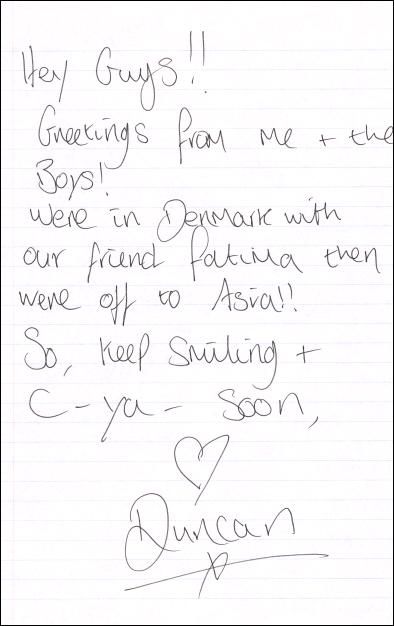 Hey Guys!!
Greetings from me + the
Boys!
were in Denmark with
our friend fatima then
were off to Asia!!
So, keep smiling +
C-ya- Soon,
Duncan